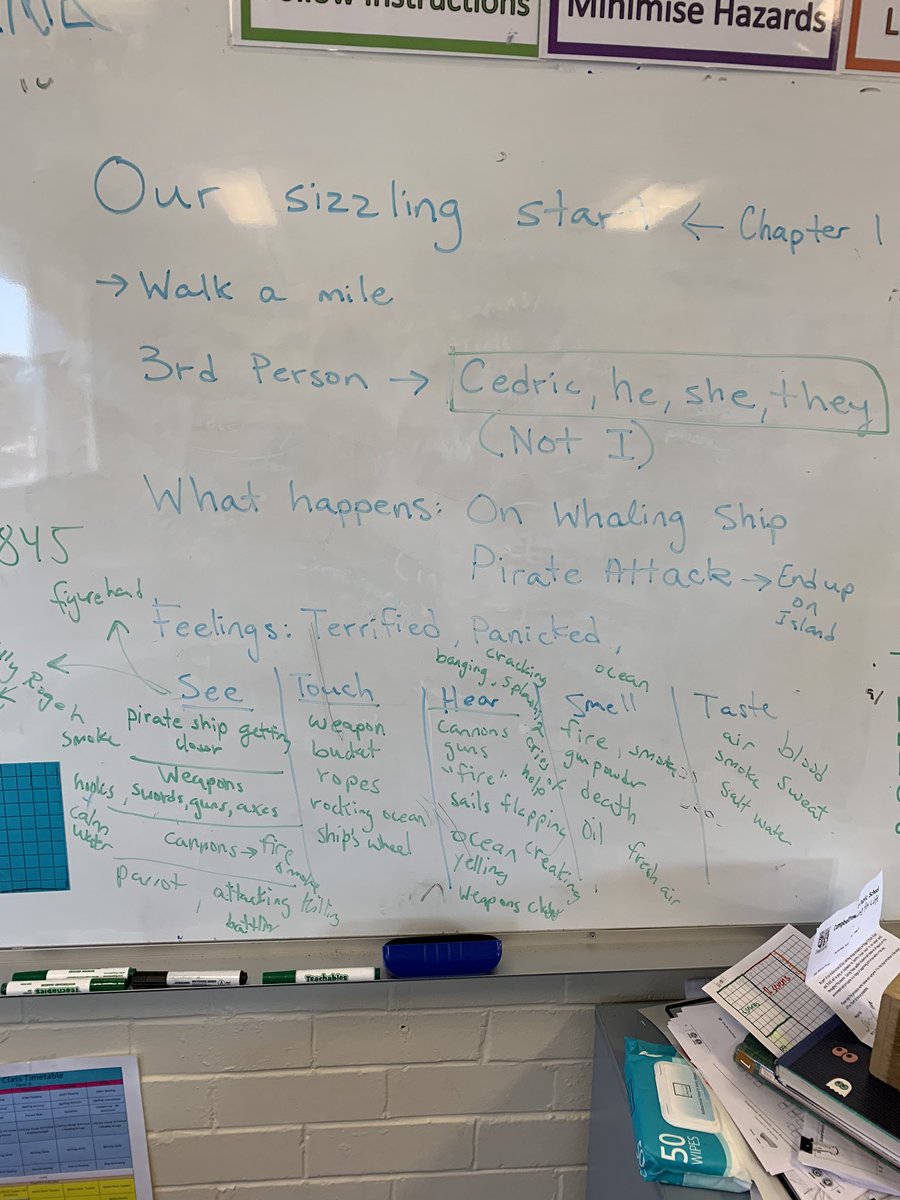 Follow Instructions
Minimise Hazards
L
Our sizzling start ← Chapter 1
→ Walk a mile
3rd Person → Cedric, he, she, they
(Not I)
What happens: On Whaling Ship
Pirate Attack → End up
on
Island
845
figurehead
Feelings: Terrified, Panicked,
See
pirate ship getting
closer
smoke
Weapons
swords, guns, axes
hooks
calm
water
cannons → fire
smoke
parrot
attacking killing
Touch
weapon
bucket
ropes
rocking ocean
ship's wheel
cracking
banging,
Hear
cannons
guns
"fire"
sails flapping
cries
help
ocean creaking
yelling
weapons
ocean
Smell
fire, smoke
gunpowder
death
oil
fresh air
Taste
air blood
smoke sweat
salt water
Teachables
Class Timetable
50
WIPES